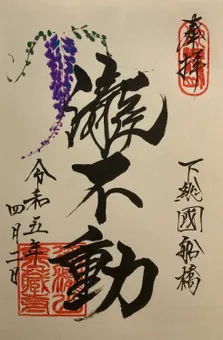 奉拝
下総國船橋
瀧不動
令和五年
四月二日